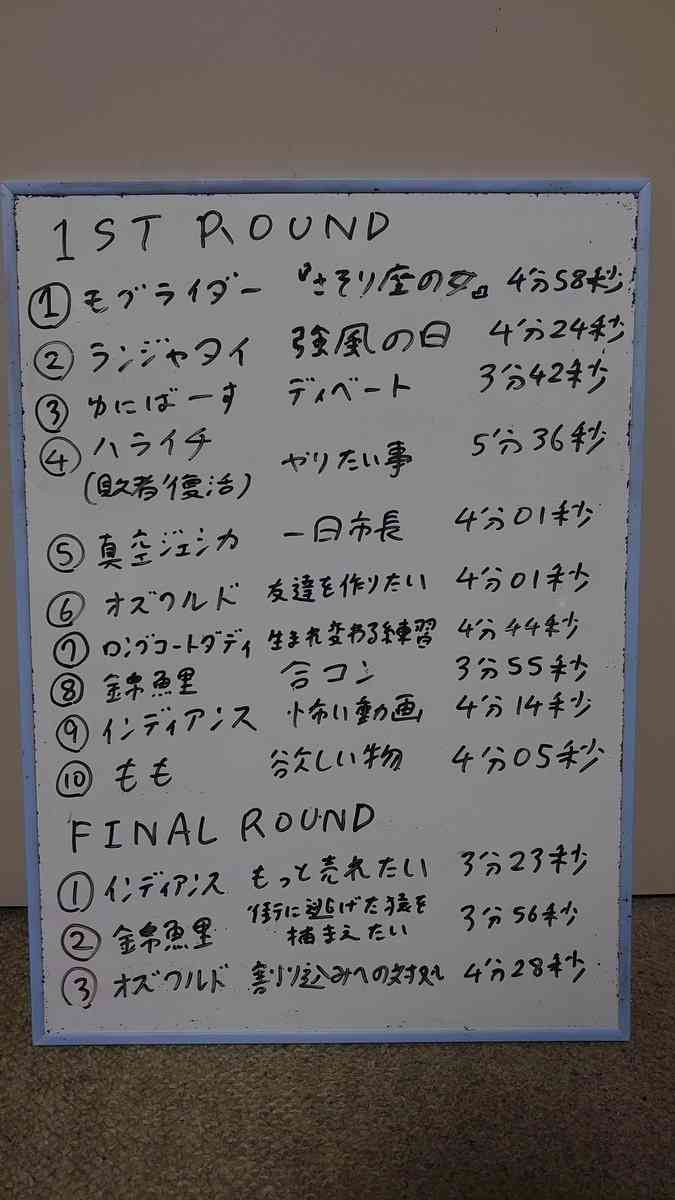 1ST ROUND
① モグライダー 『さそり座の女』 4分58秒
② ランジャタイ 強風の日 4分24秒
③ ゆにばーす ディベート 3分42秒
④ ハライチ やりたい事 5分36秒
(敗者復活)
⑤ 真空ジェシカ 一日市長 4分01秒
⑥ オズワルド 友達を作りたい 4分01秒
⑦ ロングコートダディ 生まれ変わる練習 4分44秒
⑧ 錦鯉 合コン 3分55秒
⑨ インディアンス 怖い動画 4分14秒
⑩ もも 欲しい物 4分05秒
FINAL ROUND
① インディアンス もっと売れたい 3分23秒
② 錦鯉 街に逃げた猿を 3分56秒
捕まえたい
③ オズワルド 割り込みへの対処 4分28秒